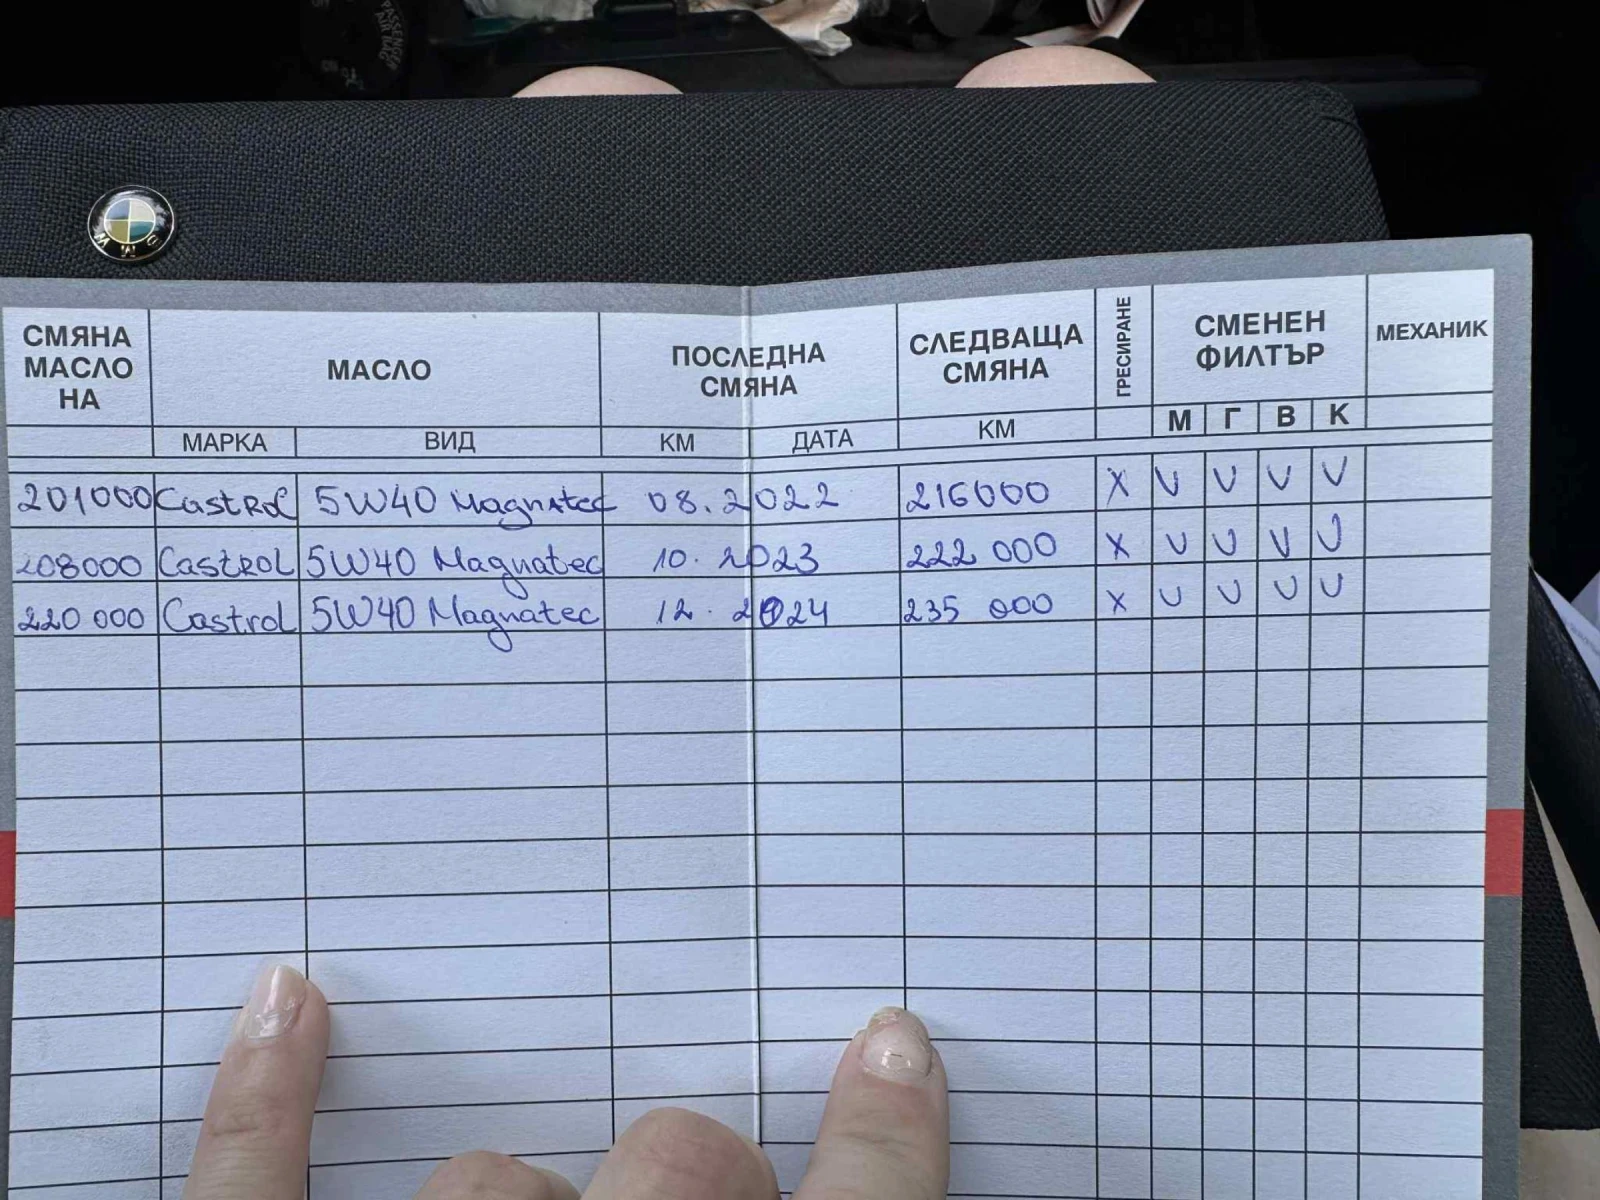 PASSENGER
AIR BAG
BMW
СМЯНА МАСЛО НА МАСЛО ПОСЛЕДНА СМЯНА СЛЕДВАЩА СМЯНА ГРЕСИРАНЕ СМЕНЕН ФИЛТЪР МЕХАНИК
МАРКА ВИД КМ ДАТА КМ М Г В К
201000 Castrol 5W40 Magnatec 08.2022 216000 X V V V V
208000 Castrol 5W40 Magnatec 10. 2023 222 000 X V V V V
220 000 Castrol 5W40 Magnatec 12. 2024 235 000 X V V V V